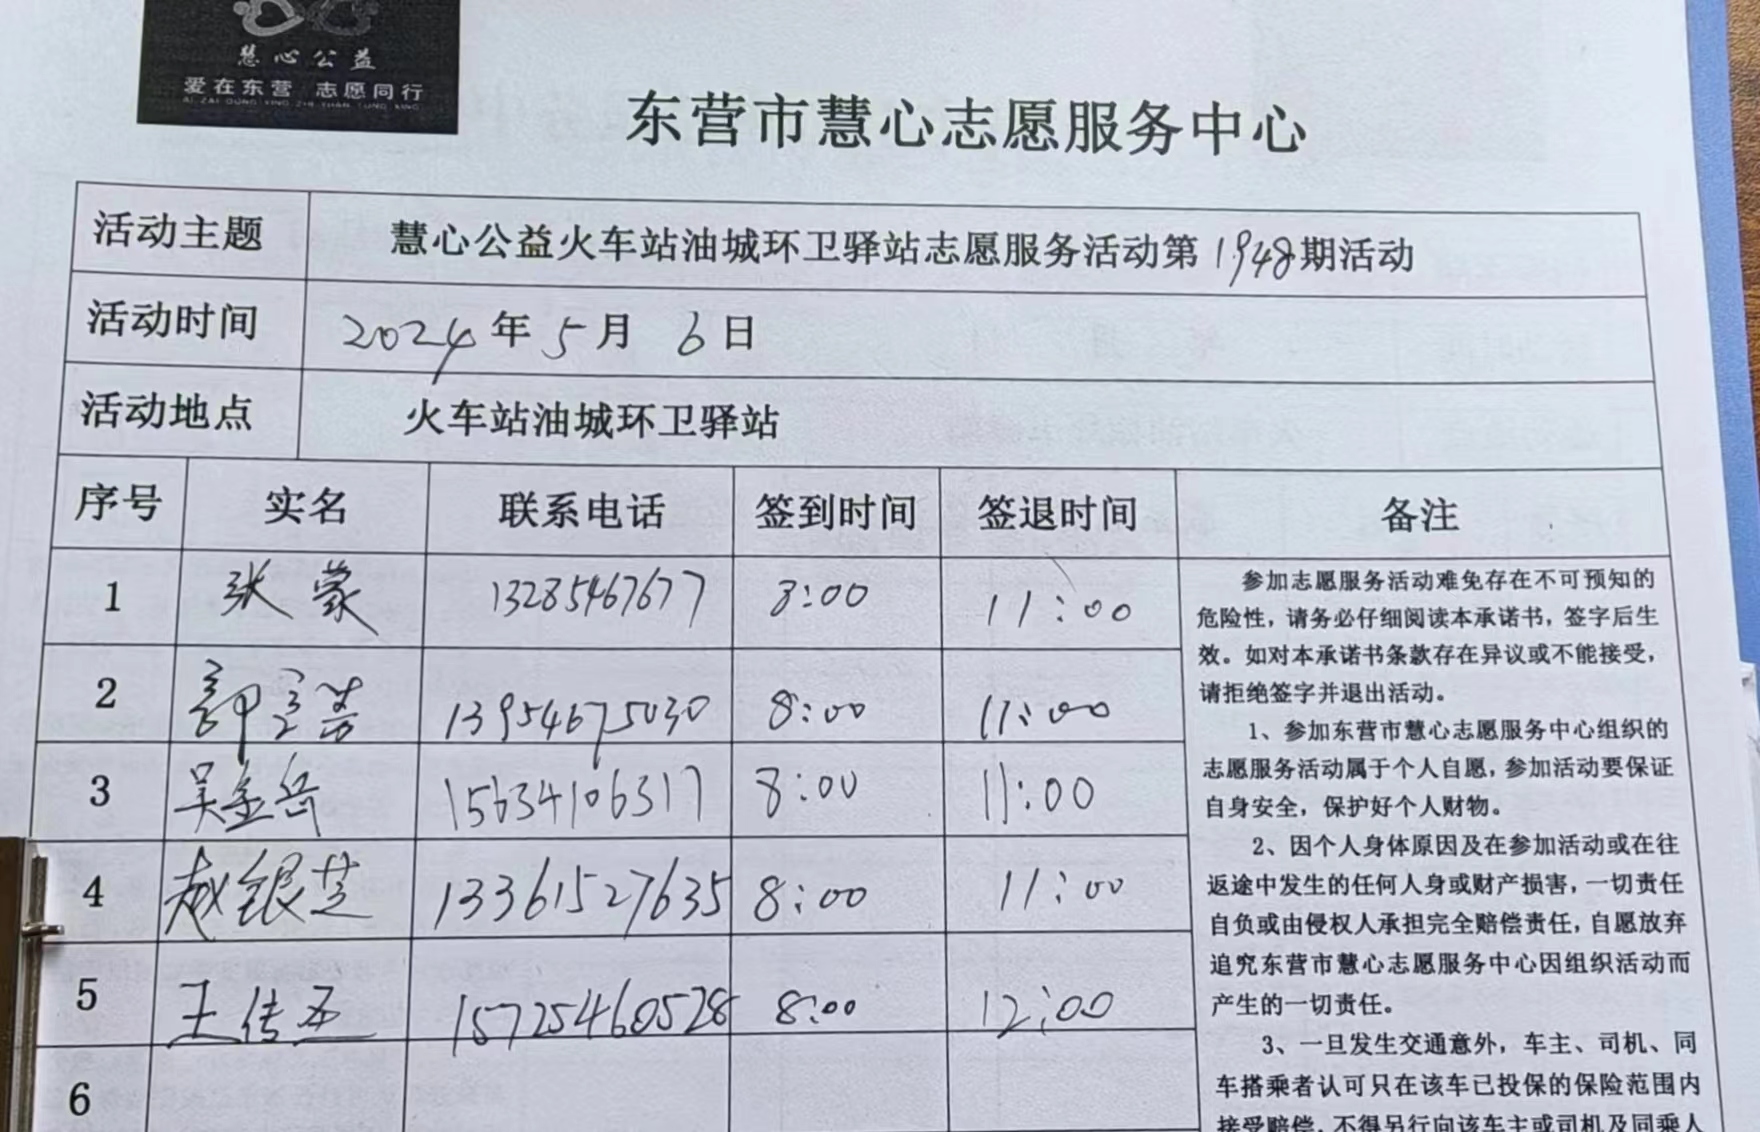 慧心公益
爱在东营 志愿同行
AI ZAI DONG YING ZHI YUAN TONG XING
东营市慧心志愿服务中心
活动主题 慧心公益火车站油城环卫驿站志愿服务活动第1948期活动
活动时间 2024年5月6日
活动地点 火车站油城环卫驿站
序号 实名 联系电话 签到时间 签退时间 备注
1 张蒙 13285467677 8:00 11:00
2 13954675030 8:00 11:00
3 吴金岳 15634106317 8:00 11:00
4 赵银芝 13361527635 8:00 11:00
5 王传 15725460528 8:00 12:00
6
参加志愿服务活动难免存在不可预知的
危险性，请务必仔细阅读本承诺书，签字后生
效。如对本承诺书条款存在异议或不能接受，
请拒绝签字并退出活动。
1、参加东营市慧心志愿服务中心组织的
志愿服务活动属于个人自愿，参加活动要保证
自身安全，保护好个人财物。
2、因个人身体原因及在参加活动或在往
返途中发生的任何人身或财产损害，一切责任
自负或由侵权人承担完全赔偿责任，自愿放弃
追究东营市慧心志愿服务中心因组织活动而
产生的一切责任。
3、一旦发生交通意外，车主、司机、同
车搭乘者认可只在该车已投保的保险范围内
接受赔偿，不得另行向该车主或司机及同乘人